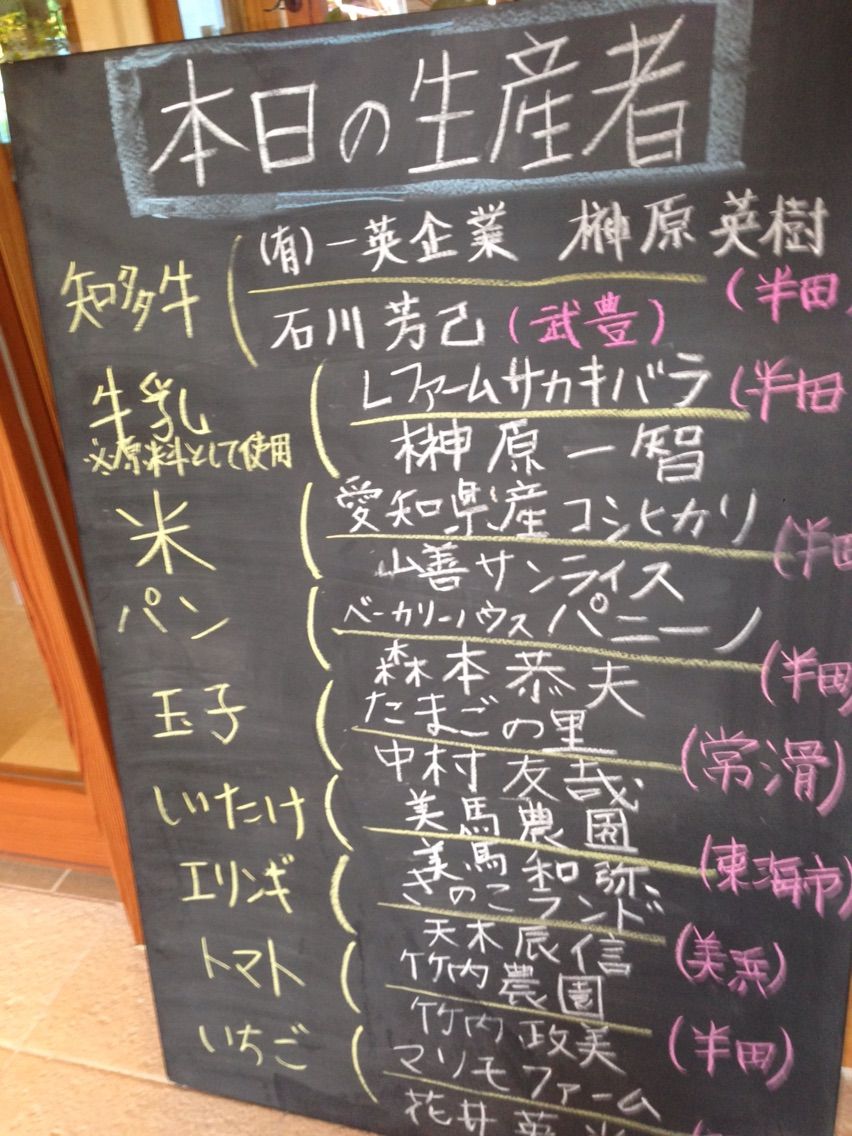 本日の生産者
知多牛
(有)一英企業 榊原英樹
(半田)
石川芳己(武豊)
牛乳
※原料として使用
Lファームサカキバラ(半田
榊原一智
米
愛知県産コシヒカリ
(半田
山善サンライス
パン
ベーカリーハウス パニーノ
(半田)
森本恭夫
玉子
たまごの里
(常滑)
中村友哉
しいたけ
美馬農園
(東海市)
美馬和弥
エリンギ
きのこランド
(美浜)
天木辰信
トマト
竹内農園
(半田)
竹内政美
いちご
マリモファーム
花井英